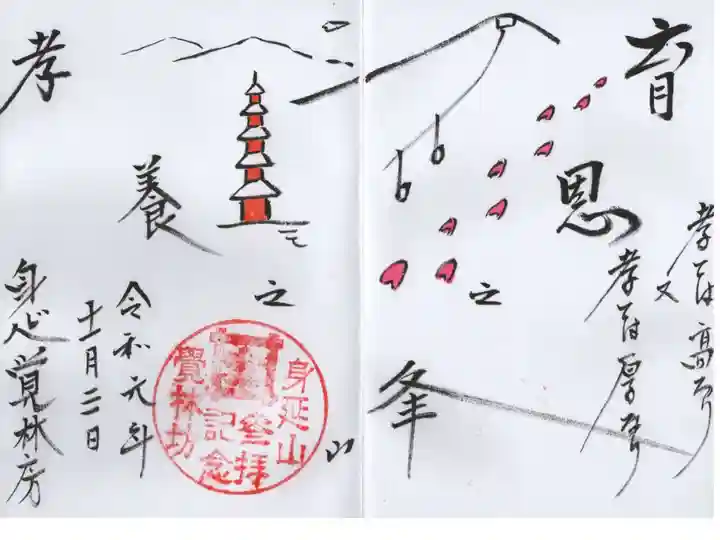 育恩之峯
孝は高なり
又
孝は厚なり
孝養之山
令和元年
十一月
身延覚林房
身延山
参拝記念
覺林坊